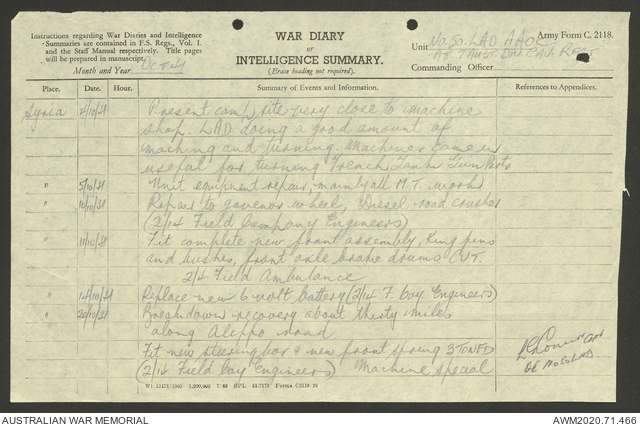 Instructions regarding War Diaries and Intelligence
Summaries are contained in F.S. Regs., Vol. I.
and the Staff Manual respectively. Title pages
will be prepared in manuscript.
Month and Year Oct 41
WAR DIARY
or
INTELLIGENCE SUMMARY.
(Erase heading not required).
Army Form C. 2118.
Unit No. 50. LAD AAOC
Att 7 Aust Div Cav Regt
Commanding Officer
Place. Date. Hour. Summary of Events and Information. References to Appendices.
Syria 2/10/41 Present camp site very close to machine
shop. LAD doing a good amount of
maching and turning. Machinery came in
useful for turning French Tank Gun Parts
" 5/10/41 Unit equipment repair, mainly all M.T. work
" 10/10/41 Repair to govenor wheel, Diesel road crusher
(2/14 Field Company Engineers)
" 11/10/41 Fit complete new front assembly, King pins
and bushes, front axle brake drums
2/4 Field Ambulance
" 14/10/41 Replace new 6 volt battery (2/14 F. Coy. Engineers)
" 20/10/41 Breakdown recovery about thirty miles
along Aleppo road
Fit new steering box & new front spring 3 TON FD
(2/14 Field Coy Engineers) Machine Special
Capt
OC No 50 LAD
Forms C2118/22
AUSTRALIAN WAR MEMORIAL
AWM2020.71.466